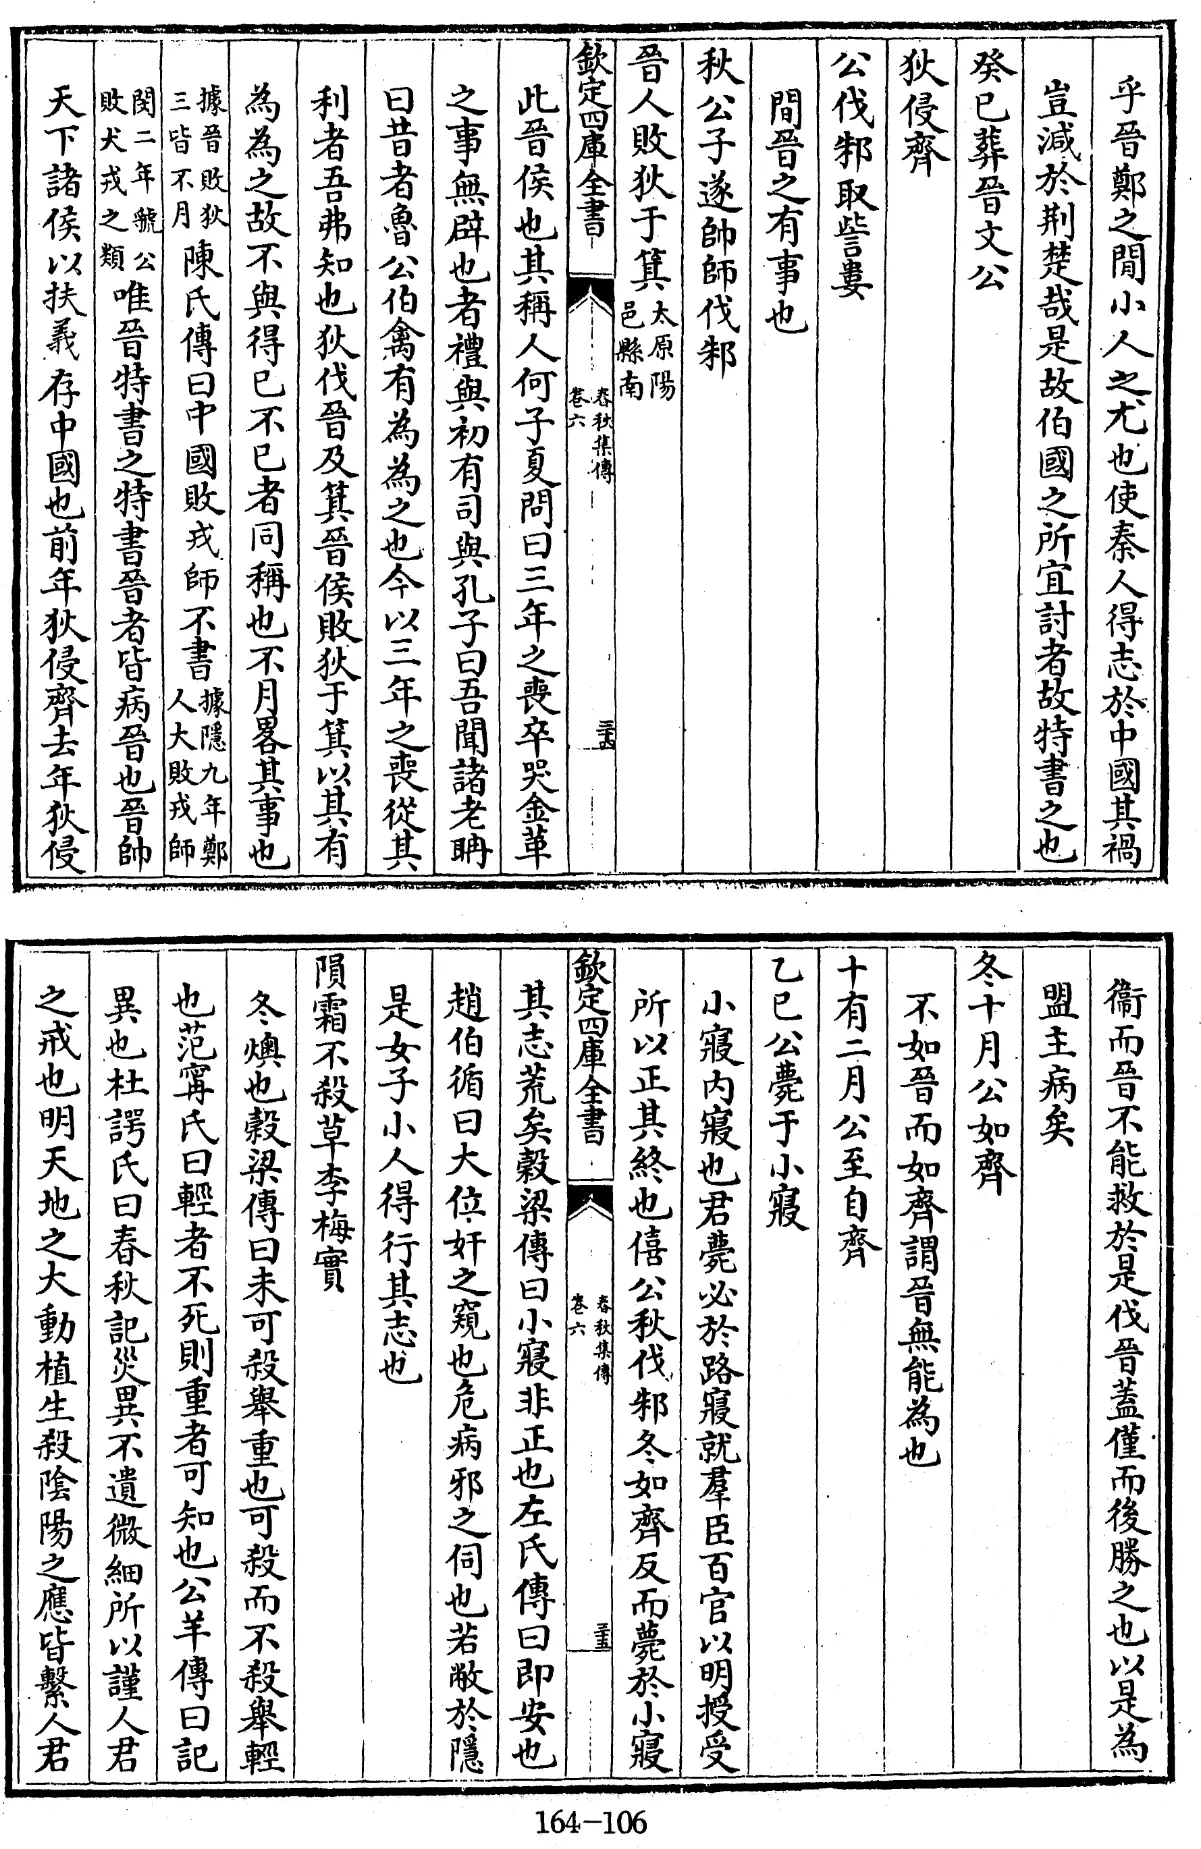 乎晉鄭之間小人之尤也使秦人得志於中國其禍
豈減於荆楚哉是故伯國之所宜討者故特書之也
癸巳葬晉文公
狄侵齊
公伐邾取訾婁
間晉之有事也
秋公子遂帥師伐邾
晉人敗狄于箕太原陽
邑縣南
欽定四庫全書
春秋集傳
卷六
三十四
此晉侯也其稱人何子夏問曰三年之喪卒哭金革
之事無辟也者禮與初有司與孔子曰吾聞諸老聃
曰昔者魯公伯禽有為為之也今以三年之喪從其
利者吾弗知也狄伐晉及箕晉侯敗狄于箕以其有
為為之故不與得已不已者同稱也不月畧其事也
據晉敗狄
三皆不月
陳氏傳曰中國敗戎師不書
據隱九年鄭
人大敗戎師
閔二年虢公
敗犬戎之類
唯晉特書之特書晉者皆病晉也晉帥
天下諸侯以扶義存中國也前年狄侵齊去年狄侵
衞而晉不能救於是伐晉蓋僅而後勝之也以是為
盟主病矣
冬十月公如齊
不如晉而如齊謂晉無能為也
十有二月公至自齊
乙巳公薨于小寢
小寢内寢也君薨必於路寢就羣臣百官以明授受
所以正其終也僖公秋伐邾冬如齊反而薨於小寢
欽定四庫全書
春秋集傳
卷六
三十五
其志荒矣穀梁傳曰小寢非正也左氏傳曰即安也
趙伯循曰大位奸之窺也危病邪之伺也若敝於隱
是女子小人得行其志也
隕霜不殺草李梅實
冬燠也穀梁傳曰未可殺舉重也可殺而不殺舉輕
也范甯氏曰輕者不死則重者可知也公羊傳曰記
異也杜諤氏曰春秋記災異不遺微細所以謹人君
之戒也明天地之大動植生殺陰陽之應皆繫人君
164-106